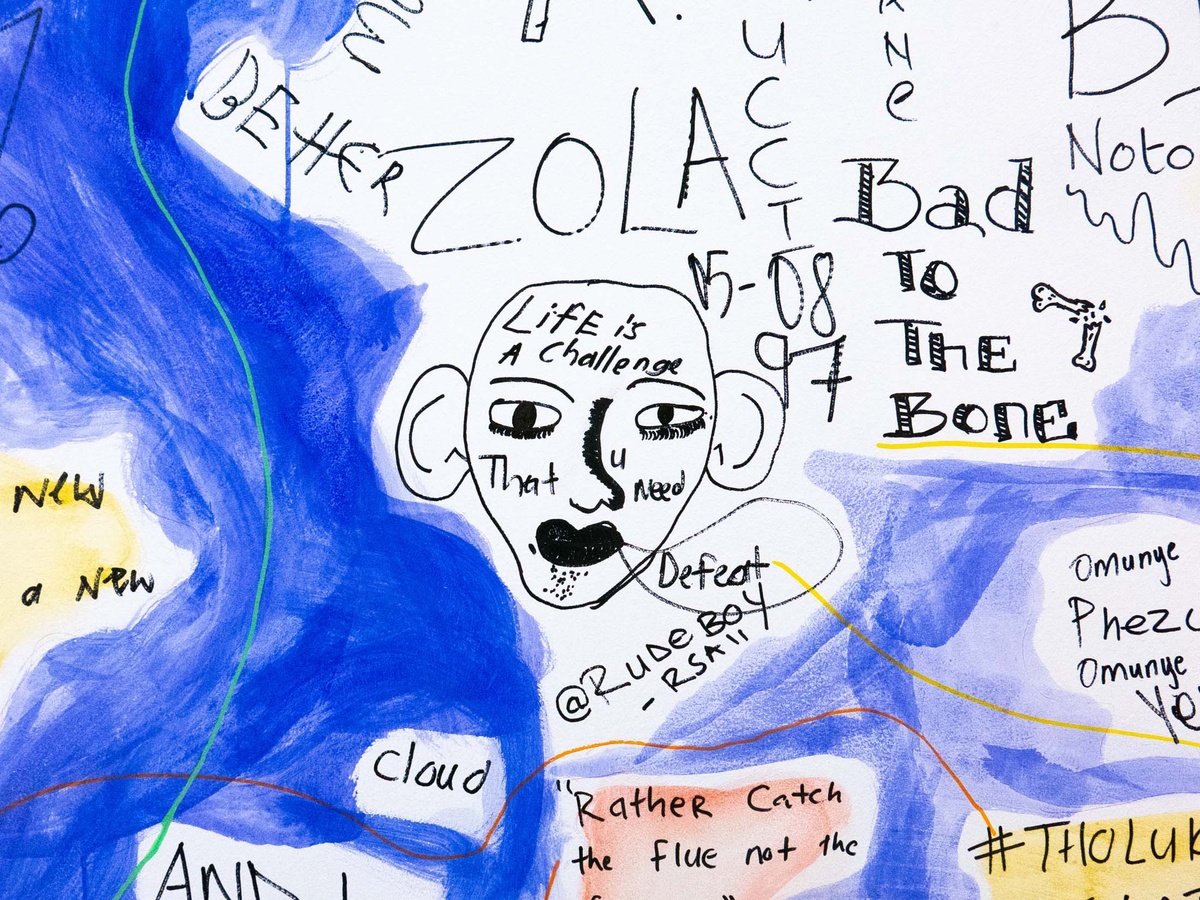 BETTER
ZOLA
UCCT
Ne
15-08
97
Bad
To
The
BonE
Noto
LifE is
A Challenge
That u Need
Defeat
@RUDEBOY
- RSA"
New
a New
Omunye
Phezu
Omunye
Ye
Cloud
"Rather Catch
the flue not the
#THOLUK
AND